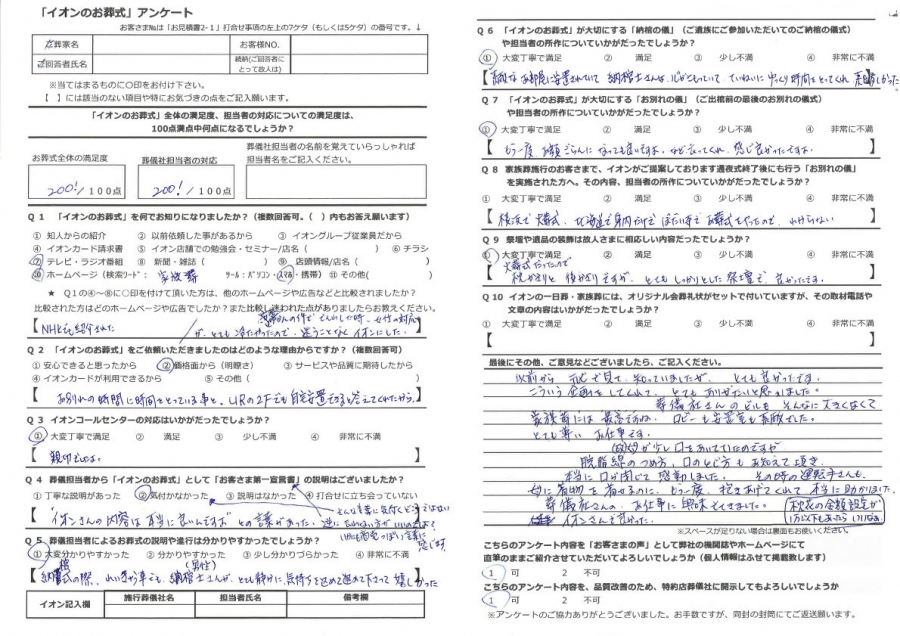 「イオンのお葬式」アンケート
お客さま№は「お見積書2-1」打合せ事項の左上の7ケタ（もしくは5ケタ）の番号です。↓
ご葬家名
お客様NO.
ご回答者氏名
続柄(ご回答者にとって故人は)
※当てはまるものに○印をお付け下さい。
【　】には該当のない項目や特にお気づきの点をご記入願います。
「イオンのお葬式」全体の満足度、担当者の対応についての満足度は、
100点満点中何点になるでしょうか？
お葬式全体の満足度
200! / 100点
葬儀社担当者の対応
200! / 100点
葬儀社担当者の名前を覚えていらっしゃれば
担当者名をご記入ください。
Q 1 「イオンのお葬式」を何でお知りになりましたか？（複数回答可。（　）内もお答え願います）
① 知人からの紹介 ② 以前依頼した事があるから ③ イオングループ従業員だから
④ イオンカード請求書 ⑤ イオン店舗での勉強会・セミナー/店名（　） ⑥ チラシ
⑦ テレビ・ラジオ番組 ⑧ 新聞・雑誌（　） ⑨ 店頭情報/店名（　）
⑩ ホームページ（検索ワード： 家族葬 ツール：パソコン・スマホ・携帯）⑪ その他(　)
★ Q1の④～⑧に○印を付けて頂いた方は、他のホームページや広告などと比較されましたか？
比較された方はどのホームページや広告でしたか？また比較し迷われた点がありましたらお教えください。
【NHKでも紹介された
が、とても冷たかったので、迷うことなくイオンにした。】
Q 2 「イオンのお葬式」をご依頼いただきましたのはどのような理由からですか？（複数回答可）
① 安心できると思ったから ② 価格面から（明瞭さ） ③ サービスや品質に期待したから
④ イオンカードが利用できるから ⑤ その他（　）
【お別れの時間に時間をとっている事と、URの2Fでも自宅安置できると答えてくれたから。】
Q 3 イオンコールセンターの対応はいかがだったでしょうか？
① 大変丁寧で満足 ② 満足 ③ 少し不満 ④ 非常に不満
【親切でした。】
Q 4 葬儀担当者から「イオンのお葬式」として「お客さま第一宣言書」の説明はございましたか？
① 丁寧な説明があった ② 気付かなかった ③ 説明はなかった ④ 打合せに立ち会っていない
【イオンさんの内容は本当に良いんですが との話があった。】
Q 5 葬儀担当者によるお葬式の説明や進行は分かりやすかったでしょうか？
① 大変分かりやすかった ② 分かりやすかった ③ 少し分かりづらかった ④ 非常に不満
(男性)
【納棺式の際、 納棺士さんが、とても静かに気持ちを込めて進めて下さって嬉しかった】
イオン記入欄
施行葬儀社名
担当者氏名
備考欄
Q 6 「イオンのお葬式」が大切にする「納棺の儀」（ご遺族にご参加いただいてのご納棺の儀式）
や担当者の所作についていかがだったでしょうか？
① 大変丁寧で満足 ② 満足 ③ 少し不満 ④ 非常に不満
【 お部屋に安置されていて 納棺士さんは、心がこもっていて、ていねいに ゆっくり時間をとってくれ、 】
Q 7 「イオンのお葬式」が大切にする「お別れの儀」（ご出棺前の最後のお別れの儀式）
や担当者の所作についていかがだったでしょうか？
① 大変丁寧で満足 ② 満足 ③ 少し不満 ④ 非常に不満
【もう一度、お顔ごらんになっても良いですよ、など言ってくれ、感じ良かったです。】
Q 8 家族葬施行のお客さまで、イオンがご提案しております通夜式終了後にも行う「お別れの儀」
を実施された方へ。その内容、担当者の所作についていかがだったでしょうか？
① 大変丁寧で満足 ② 満足 ③ 少し不満 ④ 非常に不満
【横浜で火葬式、北海道で身内だけで ぼだい寺で お葬式を行ったので、わからない】
Q 9 祭壇や遺品の装飾は故人さまに相応しい内容だったでしょうか？
① 大変丁寧で満足 ② 満足 ③ 少し不満 ④ 非常に不満
【火葬式だったので
枕かざりと 後かざりですが、とてもしっかりとした祭壇で、良かったです。】
Q 10 イオンの一日葬・家族葬には、オリジナル会葬礼状がセットで付いていますが、その取材電話や
文章の内容はいかがだったでしょうか？
① 大変丁寧で満足 ② 満足 ③ 少し不満 ④ 非常に不満
【　】
最後にその他、ご意見などございましたら、ご記入ください。
以前から 元々で見て、知っていましたが、とても良かったです。
こういう企画をしてくれて、とてもありがたいと思いました。
葬儀社さんのビルも そんなに大きくなくて
家族葬には最高ですね。ロビーも安置室も素敵でした。
とても尊い お仕事です。
が少し口をあいていたのですが
脱脂綿のつめ方、口のとじ方も お教えて頂き、
本当に口が閉じて感動しました。その時の運転手さんも、
母に着物を着せるのに、もう一度、抱きあげてくれて本当に助かりました。
葬儀社さんの、お仕事に興味をもてました。
イオンさんで良かった。
枕花の金額設定が
1万以下もあったらいいな
※スペースが足りない場合は裏面もお使いください。
こちらのアンケート内容を「お客さまの声」として弊社の機関誌やホームページにて
直筆のままご紹介させていただいてもよろしいでしょうか（個人情報はふせて掲載致します）
1 可 2 不可
こちらのアンケート内容を、品質改善のため、特約店葬儀社に開示してもよろしいでしょうか
1 可 2 不可
※アンケートのご協力ありがとうございました。お手数ですが、同封の封筒にてご返送願います。